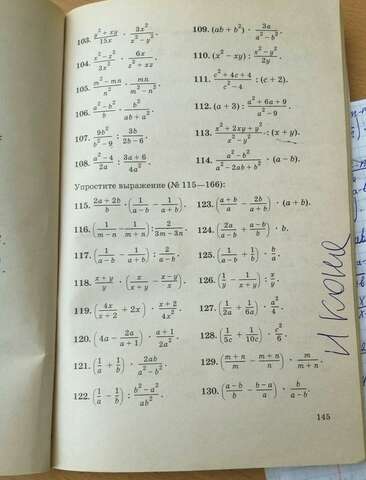 103. \frac{x^2+xy}{15x} · \frac{3x^2}{x^2-y^2}. 109. (ab + b^2) · \frac{3a}{a^2-b^2}.
104. \frac{x^2-z^2}{3x^2} · \frac{6x}{z^2+xz}. 110. (x^2 − xy) : \frac{x^2-y^2}{2y}.
105. \frac{m^2-mn}{n^2} · \frac{mn}{m^2-n^2}. 111. \frac{c^2+4c+4}{c^2-4} : (c + 2).
106. \frac{a^2-b^2}{b} · \frac{b^2}{ab+a^2}. 112. (a + 3) : \frac{a^2+6a+9}{a^2-9}.
107. \frac{9b^2}{b^2-9} : \frac{3b}{2b-6}. 113. \frac{x^2+2xy+y^2}{x^2-y^2} : (x + y).
108. \frac{a^2-4}{2a} : \frac{3a+6}{4a^2}. 114. \frac{a^2-b^2}{a^2-2ab+b^2} · (a − b).
Упростите выражение (№ 115—166):
115. \frac{2a+2b}{b} · (\frac{1}{a-b} − \frac{1}{a+b}). 123. (\frac{a+b}{a} − \frac{2b}{a+b}) · (a + b).
116. (\frac{1}{m-n} − \frac{1}{m+n}) : \frac{2}{3m-3n}. 124. (\frac{2a}{a-b} · \frac{a-b}{b}) · b.
117. (\frac{1}{a-b} − \frac{1}{a+b}) : \frac{2}{a-b}. 125. (\frac{1}{a-b} + \frac{1}{b}) · \frac{b}{a}.
118. \frac{x+y}{y} · (\frac{x}{x+y} − \frac{x-y}{x}). 126. (\frac{1}{y} − \frac{1}{x+y}) : \frac{x}{y}.
119. (\frac{4x}{x+2} + 2x) · \frac{x+2}{4x^2}. 127. (\frac{1}{2a} + \frac{1}{6a}) · \frac{a^2}{4}.
120. (4a − \frac{2a}{a+1}) · \frac{a+1}{2a^2}. 128. (\frac{1}{5c} + \frac{1}{10c}) · \frac{c^2}{6}.
121. (\frac{1}{a} + \frac{1}{b}) · \frac{2ab}{a^2-b^2}. 129. (\frac{m+n}{m} − \frac{m+n}{n}) · \frac{m}{m+n}.
122. (\frac{1}{a} − \frac{1}{b}) : \frac{b^2-a^2}{ab^2}. 130. (\frac{a-b}{b} − \frac{b-a}{a}) · \frac{b}{a-b}.
145